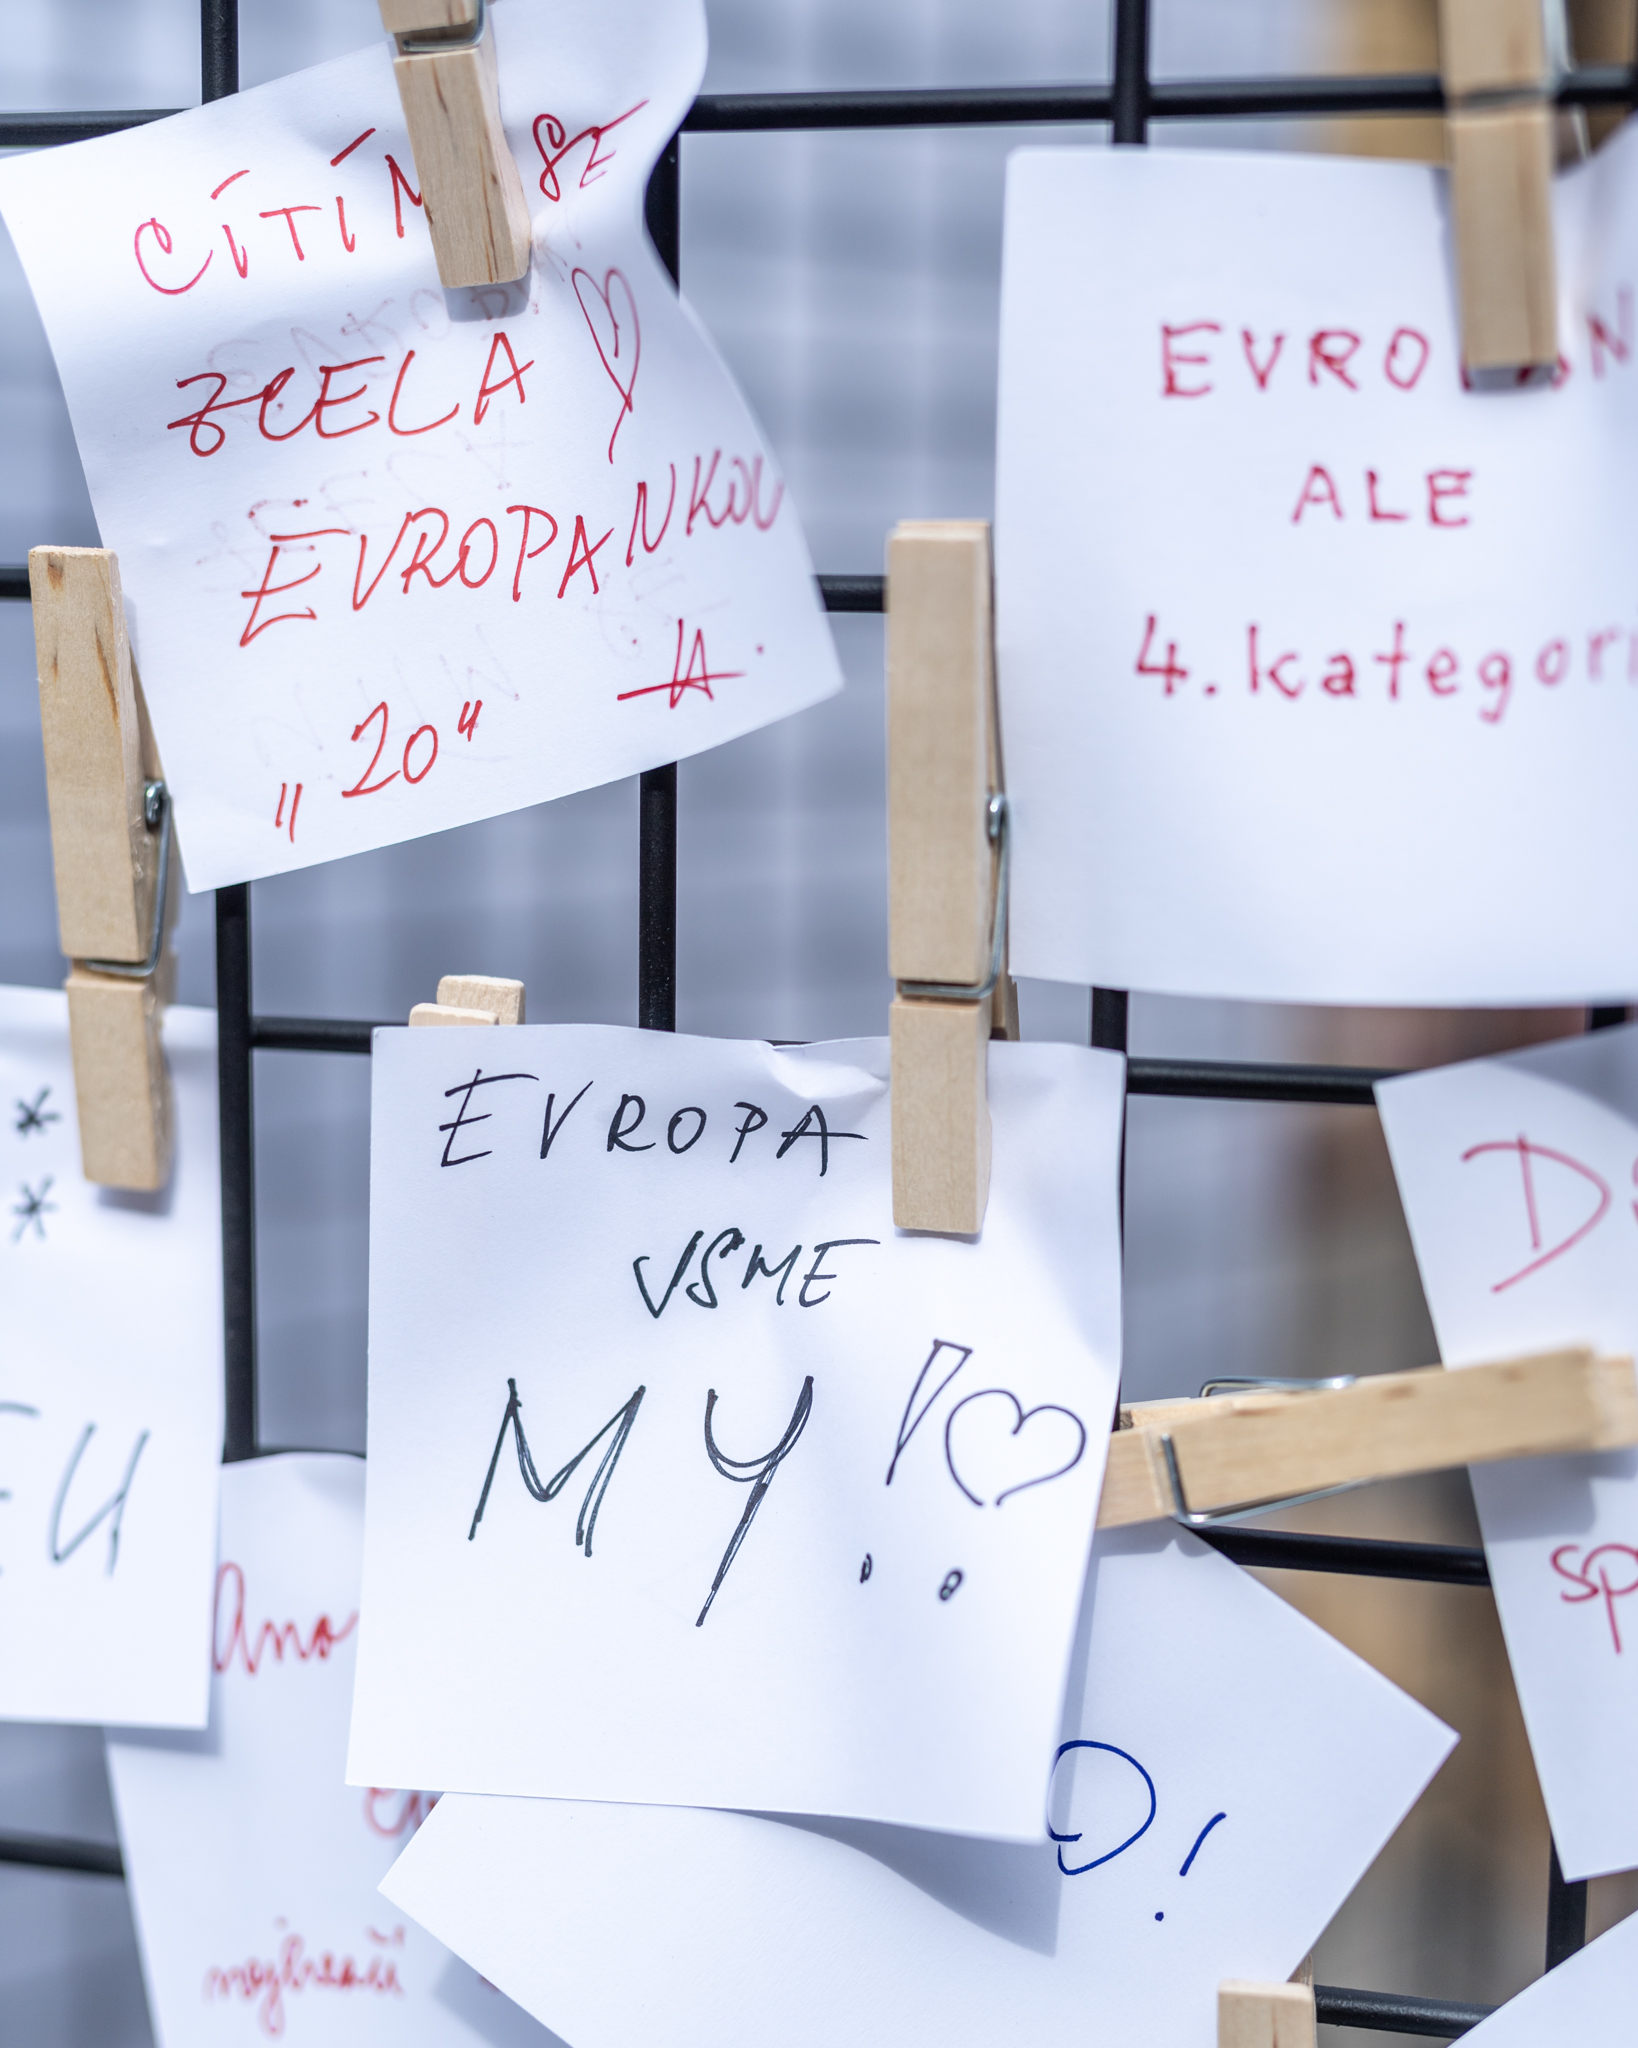 CÍTÍM SE
ZCELA
EVROPANKOU
„20“
EVROPAN
ALE
4. kategori
EVROPA
JSME
MY !
Ano
D!
sp